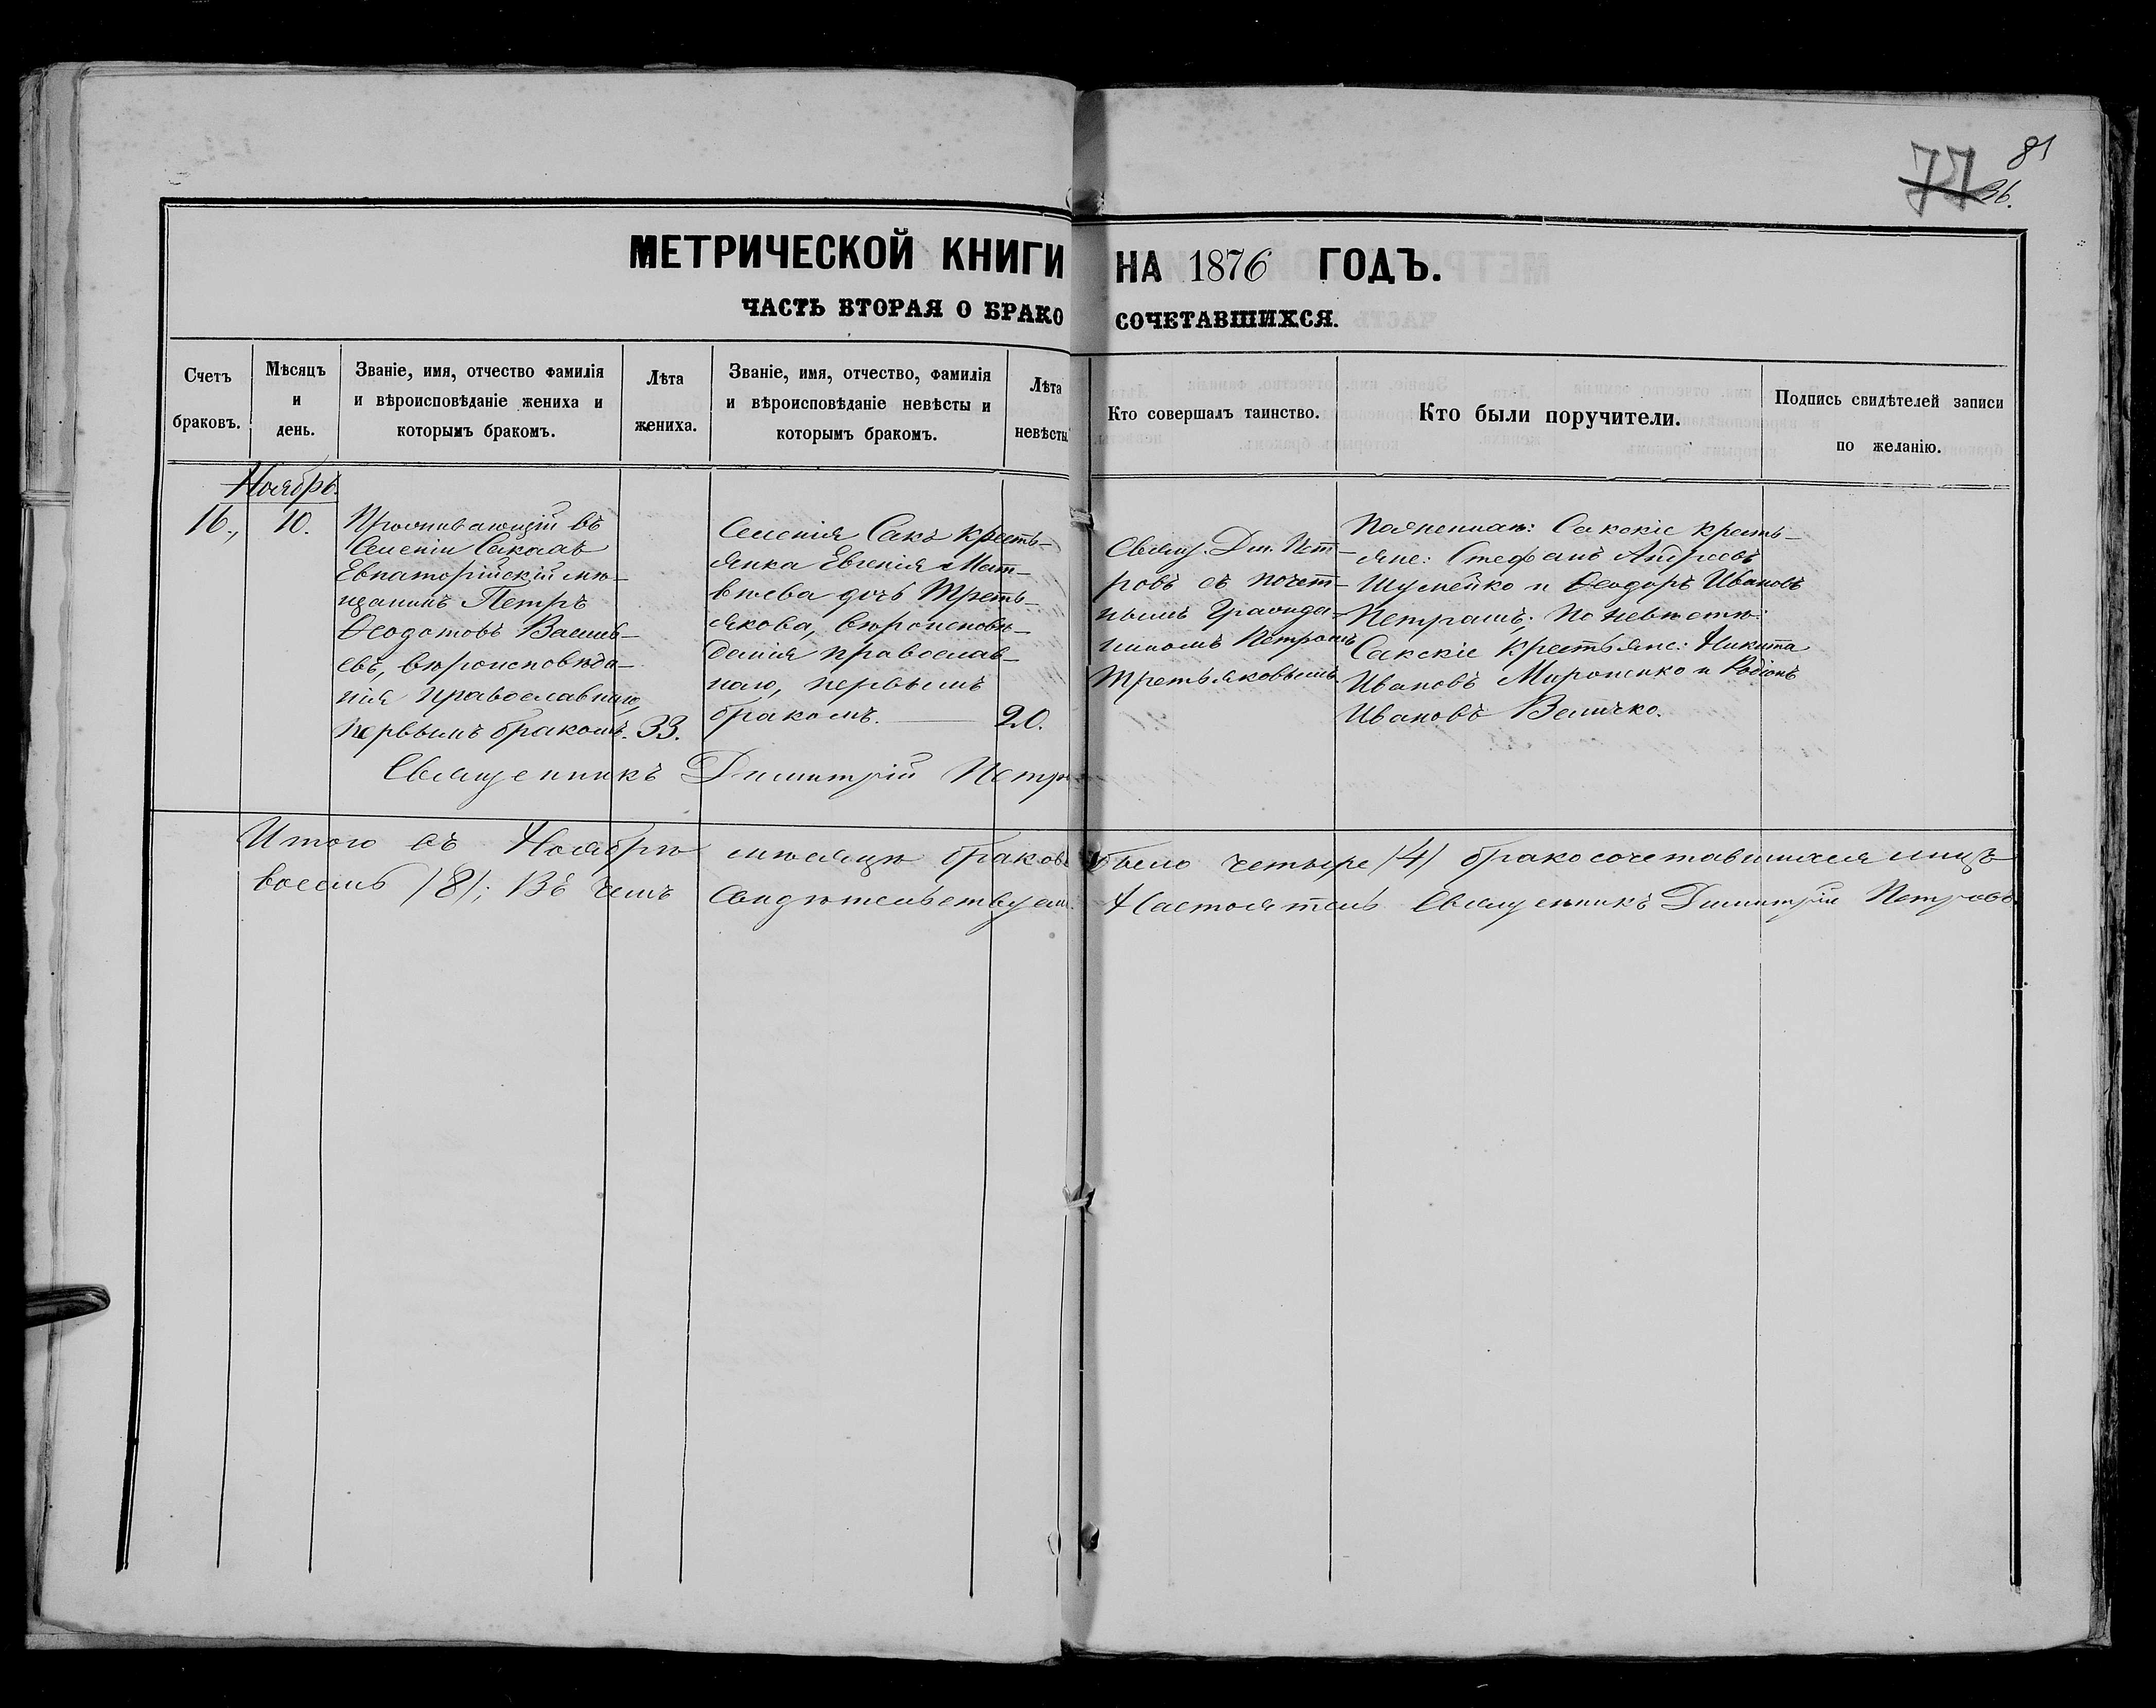 81
77
36.
МЕТРИЧЕСКОЙ КНИГИ НА 1876 ГОДЪ.
ЧАСТЬ ВТОРАЯ О БРАКОСОЧЕТАВШИХСЯ.
Счетъ браковъ.
Мѣсяцъ и день.
Званіе, имя, отчество фамилія и вѣроисповѣданіе жениха и которымъ бракомъ.
Лѣта жениха.
Званіе, имя, отчество, фамилія и вѣроисповѣданіе невѣсты и которымъ бракомъ.
Лѣта невѣсты
Кто совершалъ таинство.
Кто были поручители.
Подпись свидѣтелей записи по желанію.
Ноябрь.
16., 10.
Проживающій въ
Селеніи Сакахъ
Евпаторійскій мѣ-
щанинъ Петръ
Ѳеодотовъ Василь-
евъ, вѣроисповѣда-
нія православнаго,
первымъ бракомъ. 33.
Селенія Сакъ кресть-
янка Евгенія Мат-
вѣева дочь Треть-
якова, вѣроисповѣ-
данія православ-
наго, первымъ
бракомъ. 20.
Свящ. Дим. Пет-
ровъ съ почет-
нымъ гражда-
ниномъ Петромъ
Третьяковымъ.
По женихѣ: Сакскіе кресть-
яне: Стефанъ Андреевъ
Шумейко и Ѳеодоръ Ивановъ
Петрашъ; по невѣстѣ:
Сакскіе крестьяне: Никита
Ивановъ Мироненко и Родіонъ
Ивановъ Величко.
Священникъ Димитрій Петро
Итого въ Ноябрѣ мѣсяцѣ браковъ было четыре /4/ бракосочетавшихся лицъ
восемь /8/; Въ чемъ свидѣтельствуемъ. Настоятель Священникъ Димитрій Петровъ